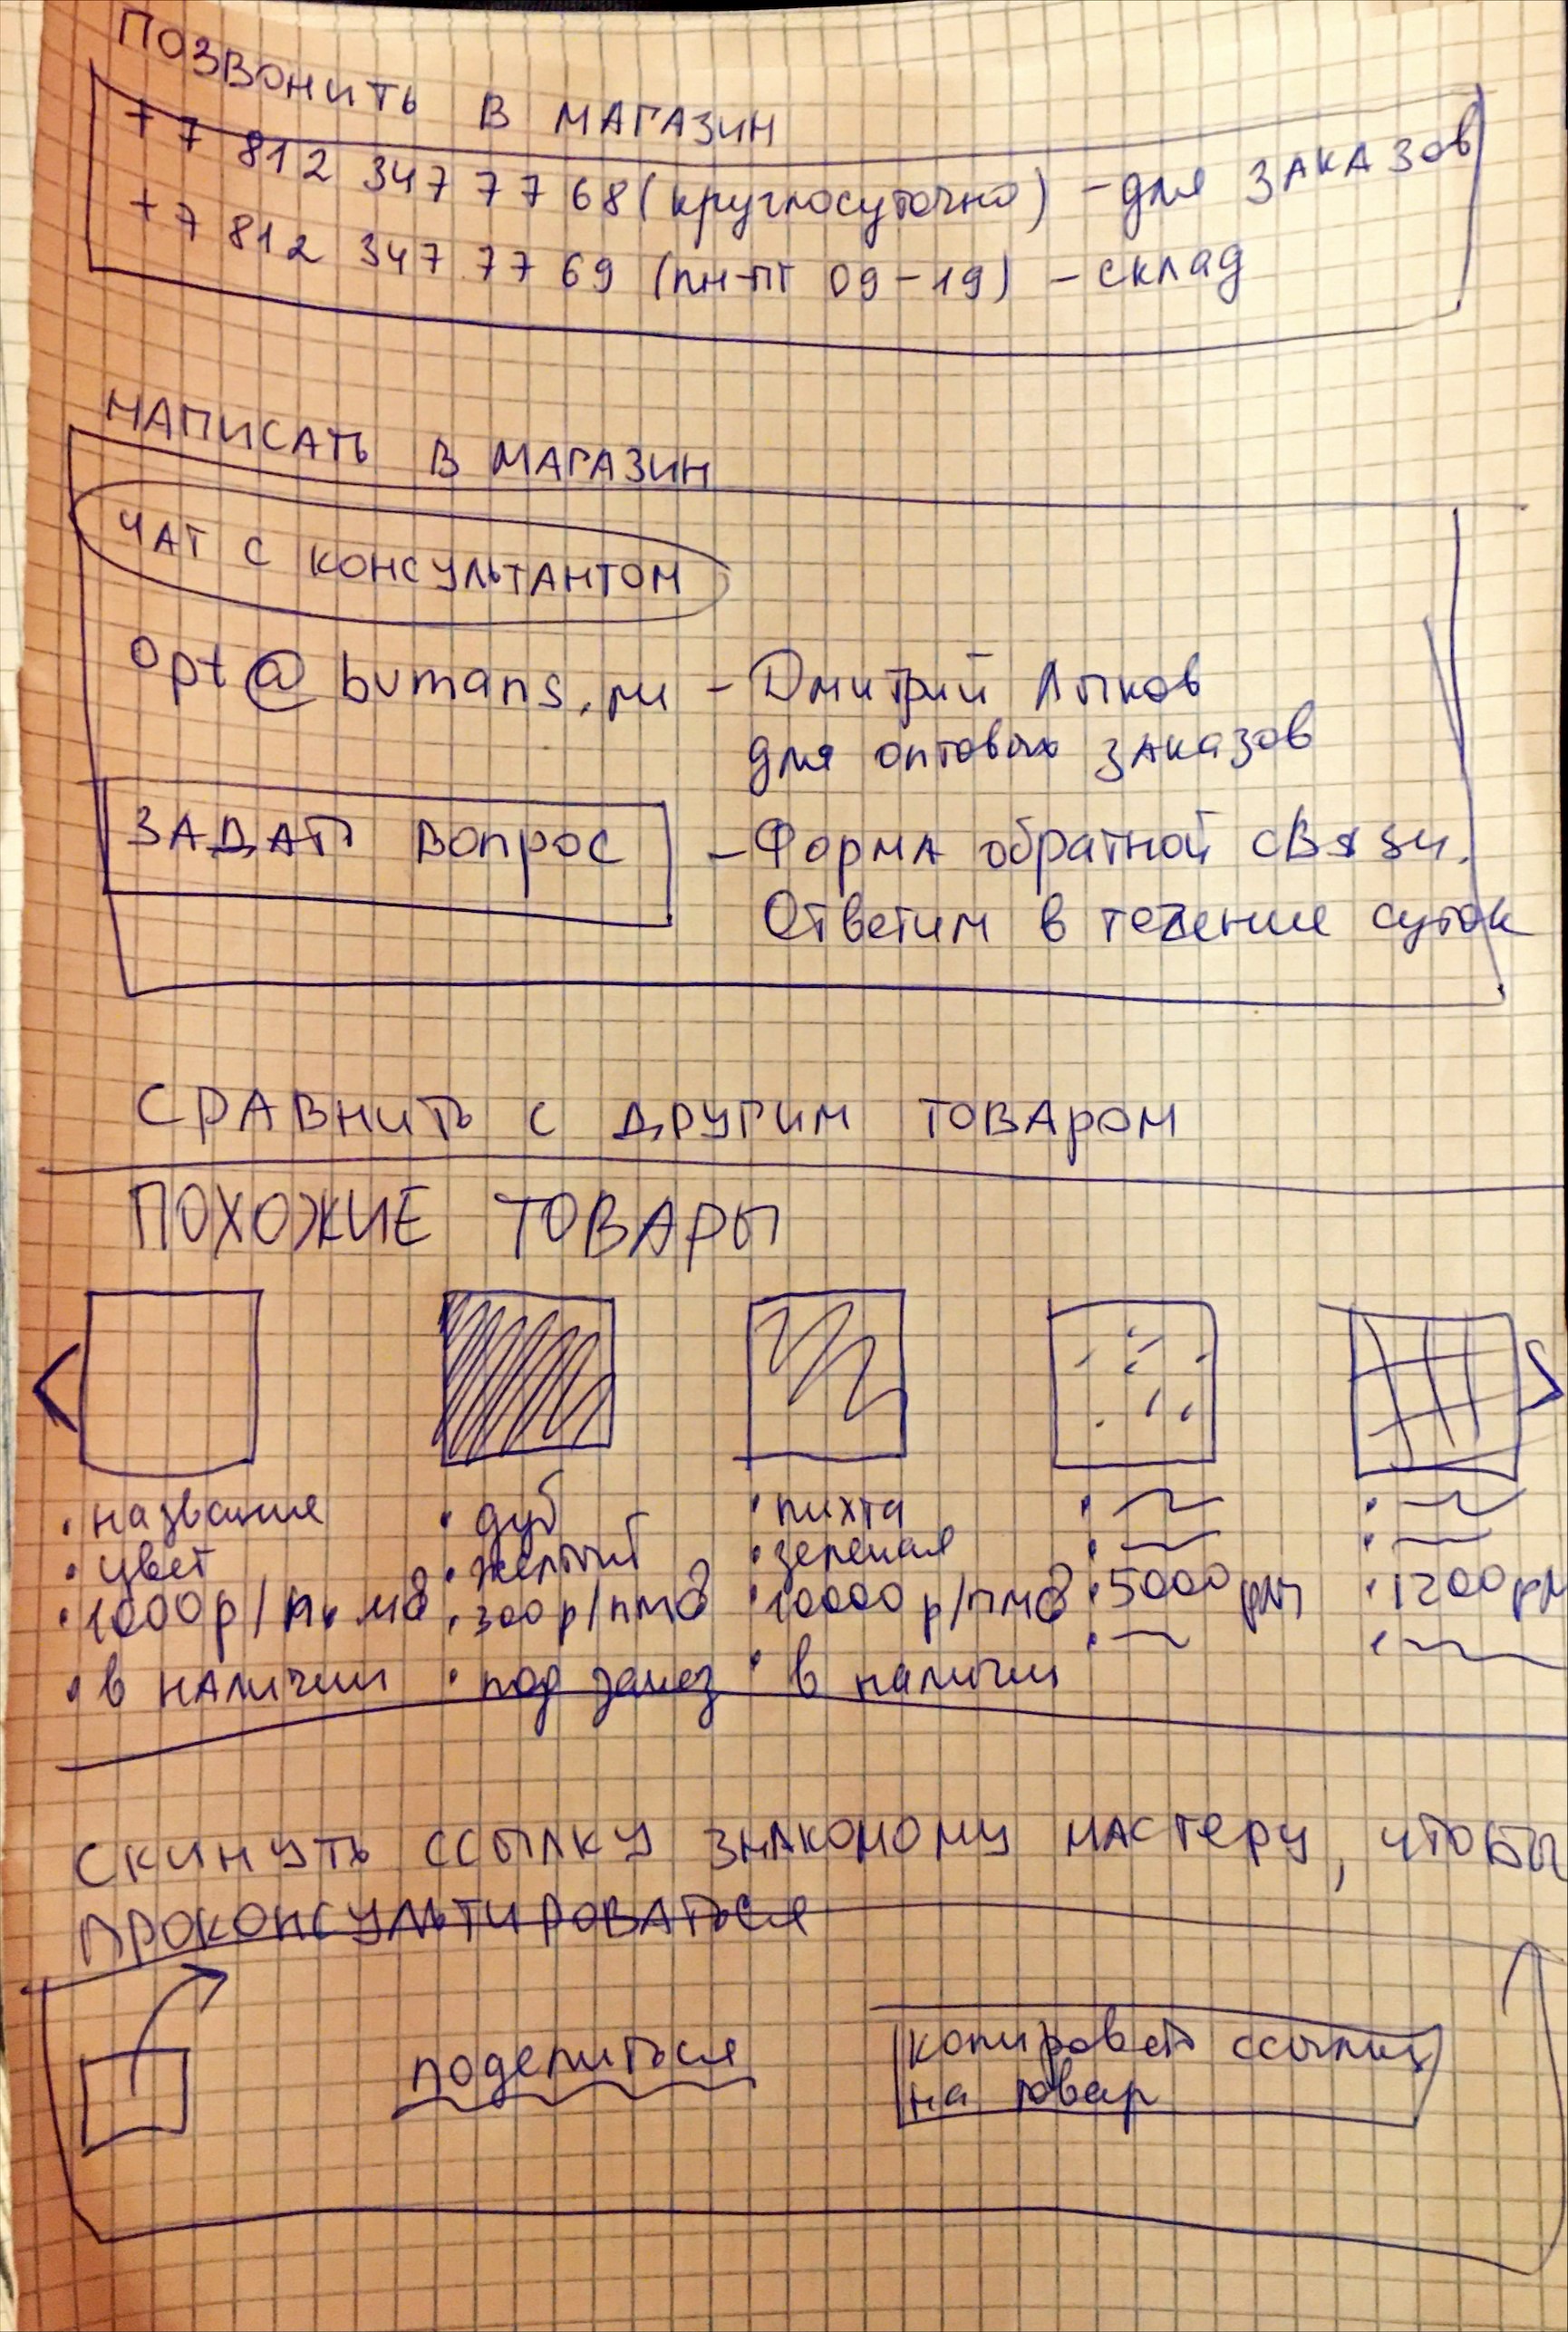 ПОЗВОНИТЬ В МАГАЗИН
+7 812 347 77 68 (круглосуточно) - для ЗАКАЗОВ
+7 812 347 77 69 (пн-пт 09-19) - склад
НАПИСАТЬ В МАГАЗИН
ЧАТ С КОНСУЛЬТАНТОМ
opt@bumans.ru - Дмитрий Лыков
для оптовых заказов
ЗАДАТЬ ВОПРОС - Форма обратной связи.
Ответим в течение суток
СРАВНИТЬ С ДРУГИМ ТОВАРОМ
ПОХОЖИЕ ТОВАРЫ
< >
• название • дуб • пихта
• цвет • желтый • зеленая
• 1000р/п.м • 300р/пм • 10000р/пм • 5000 • 1200
• в наличии • под заказ • в наличии
СКИНУТЬ ССЫЛКУ ЗНАКОМОМУ МАСТЕРУ, ЧТОБЫ
ПРОКОНСУЛЬТИРОВАТЬСЯ
поделиться копировать ссылку
на товар